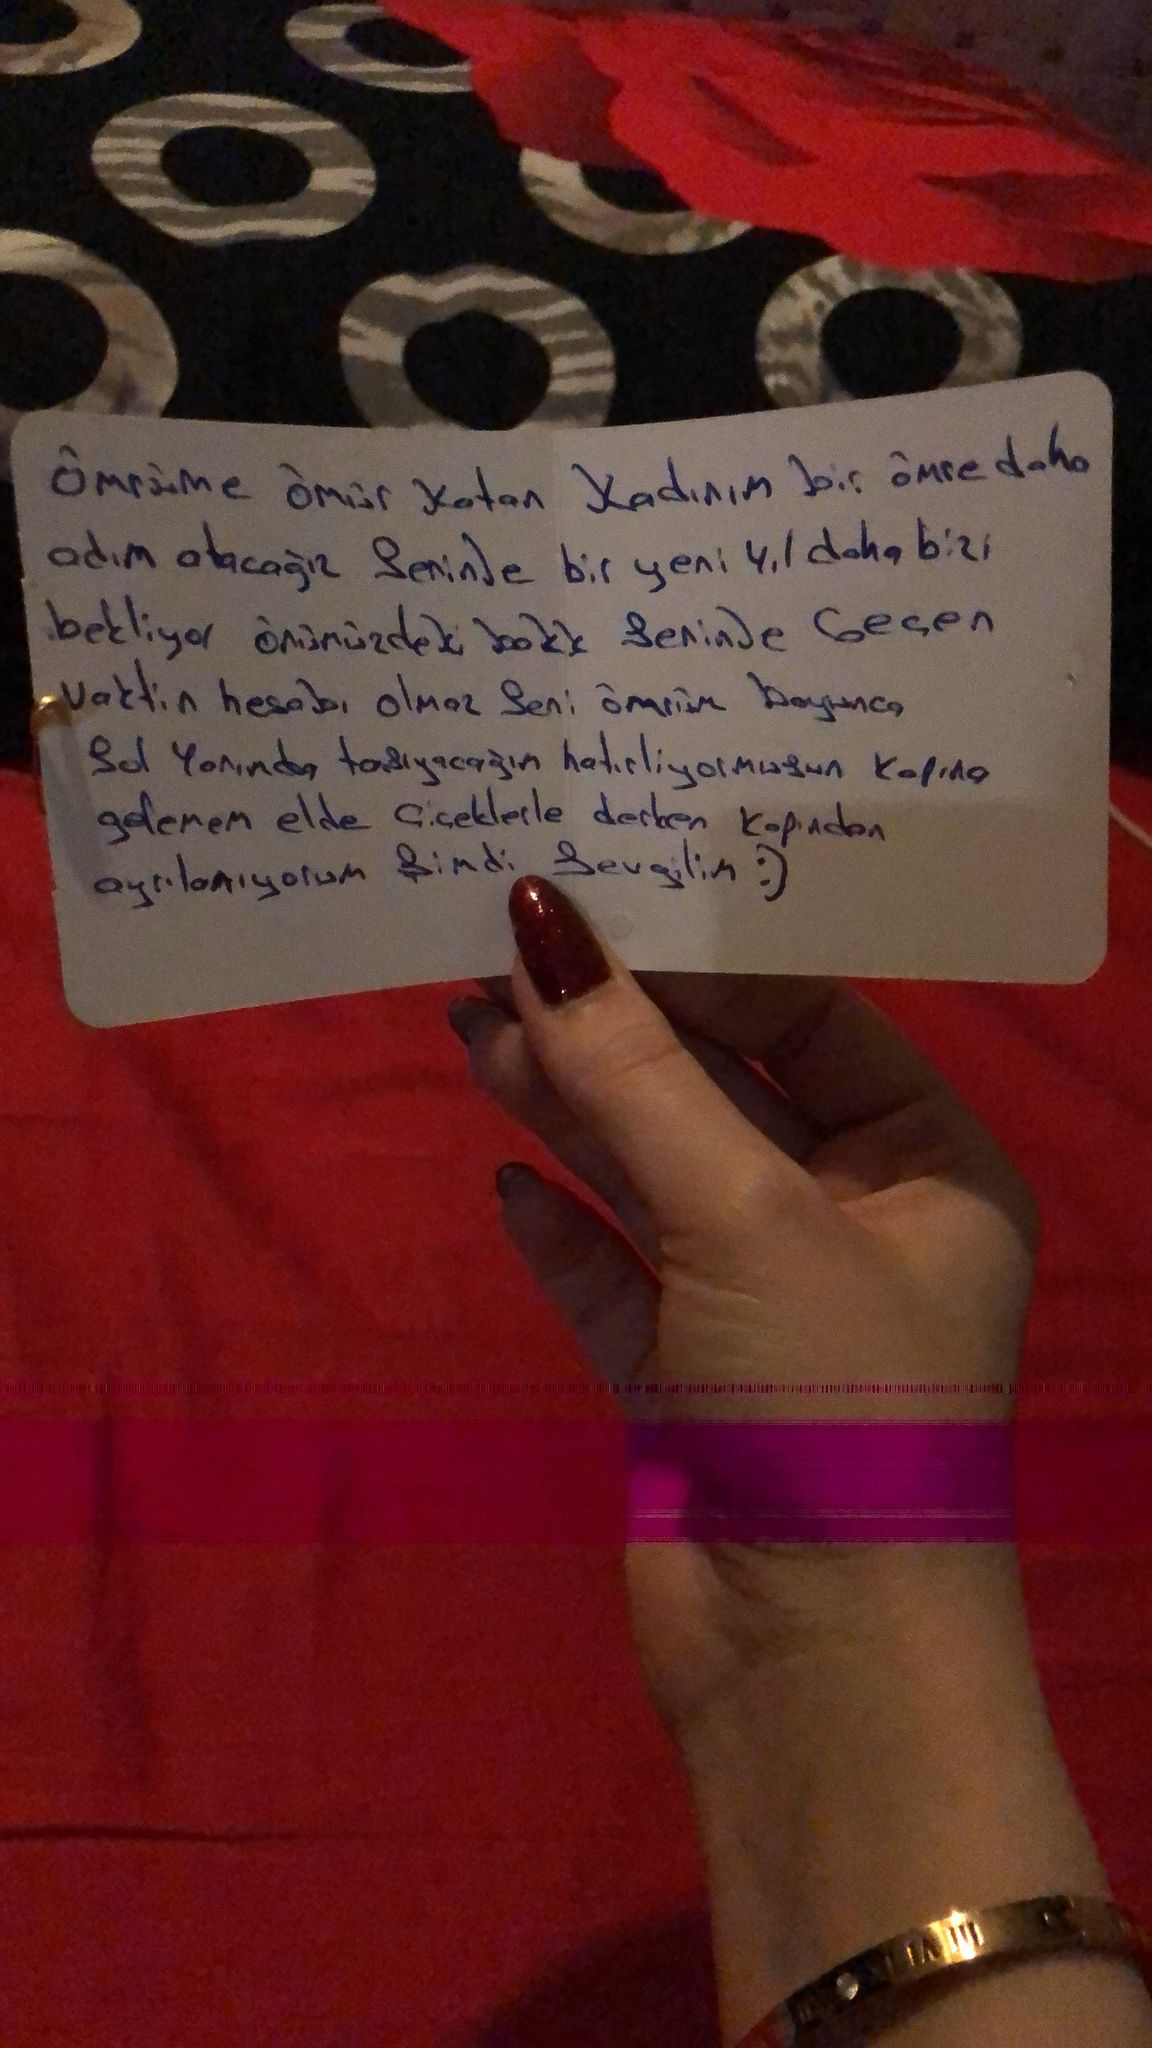 Ömrüme ömür katan kadınım bir ömre daha
adım atacağız seninle bir yeni yıl daha bizi
bekliyor önümüzdeki seninle Geçen
vaktin hesabı olmaz seni ömrüm boyunca
Sol Yanımda taşıyacağım hatırlıyormusun kapına
gelemem elde çiçeklerle derken kapından
ayrılamıyorum şimdi Sevgilim :)